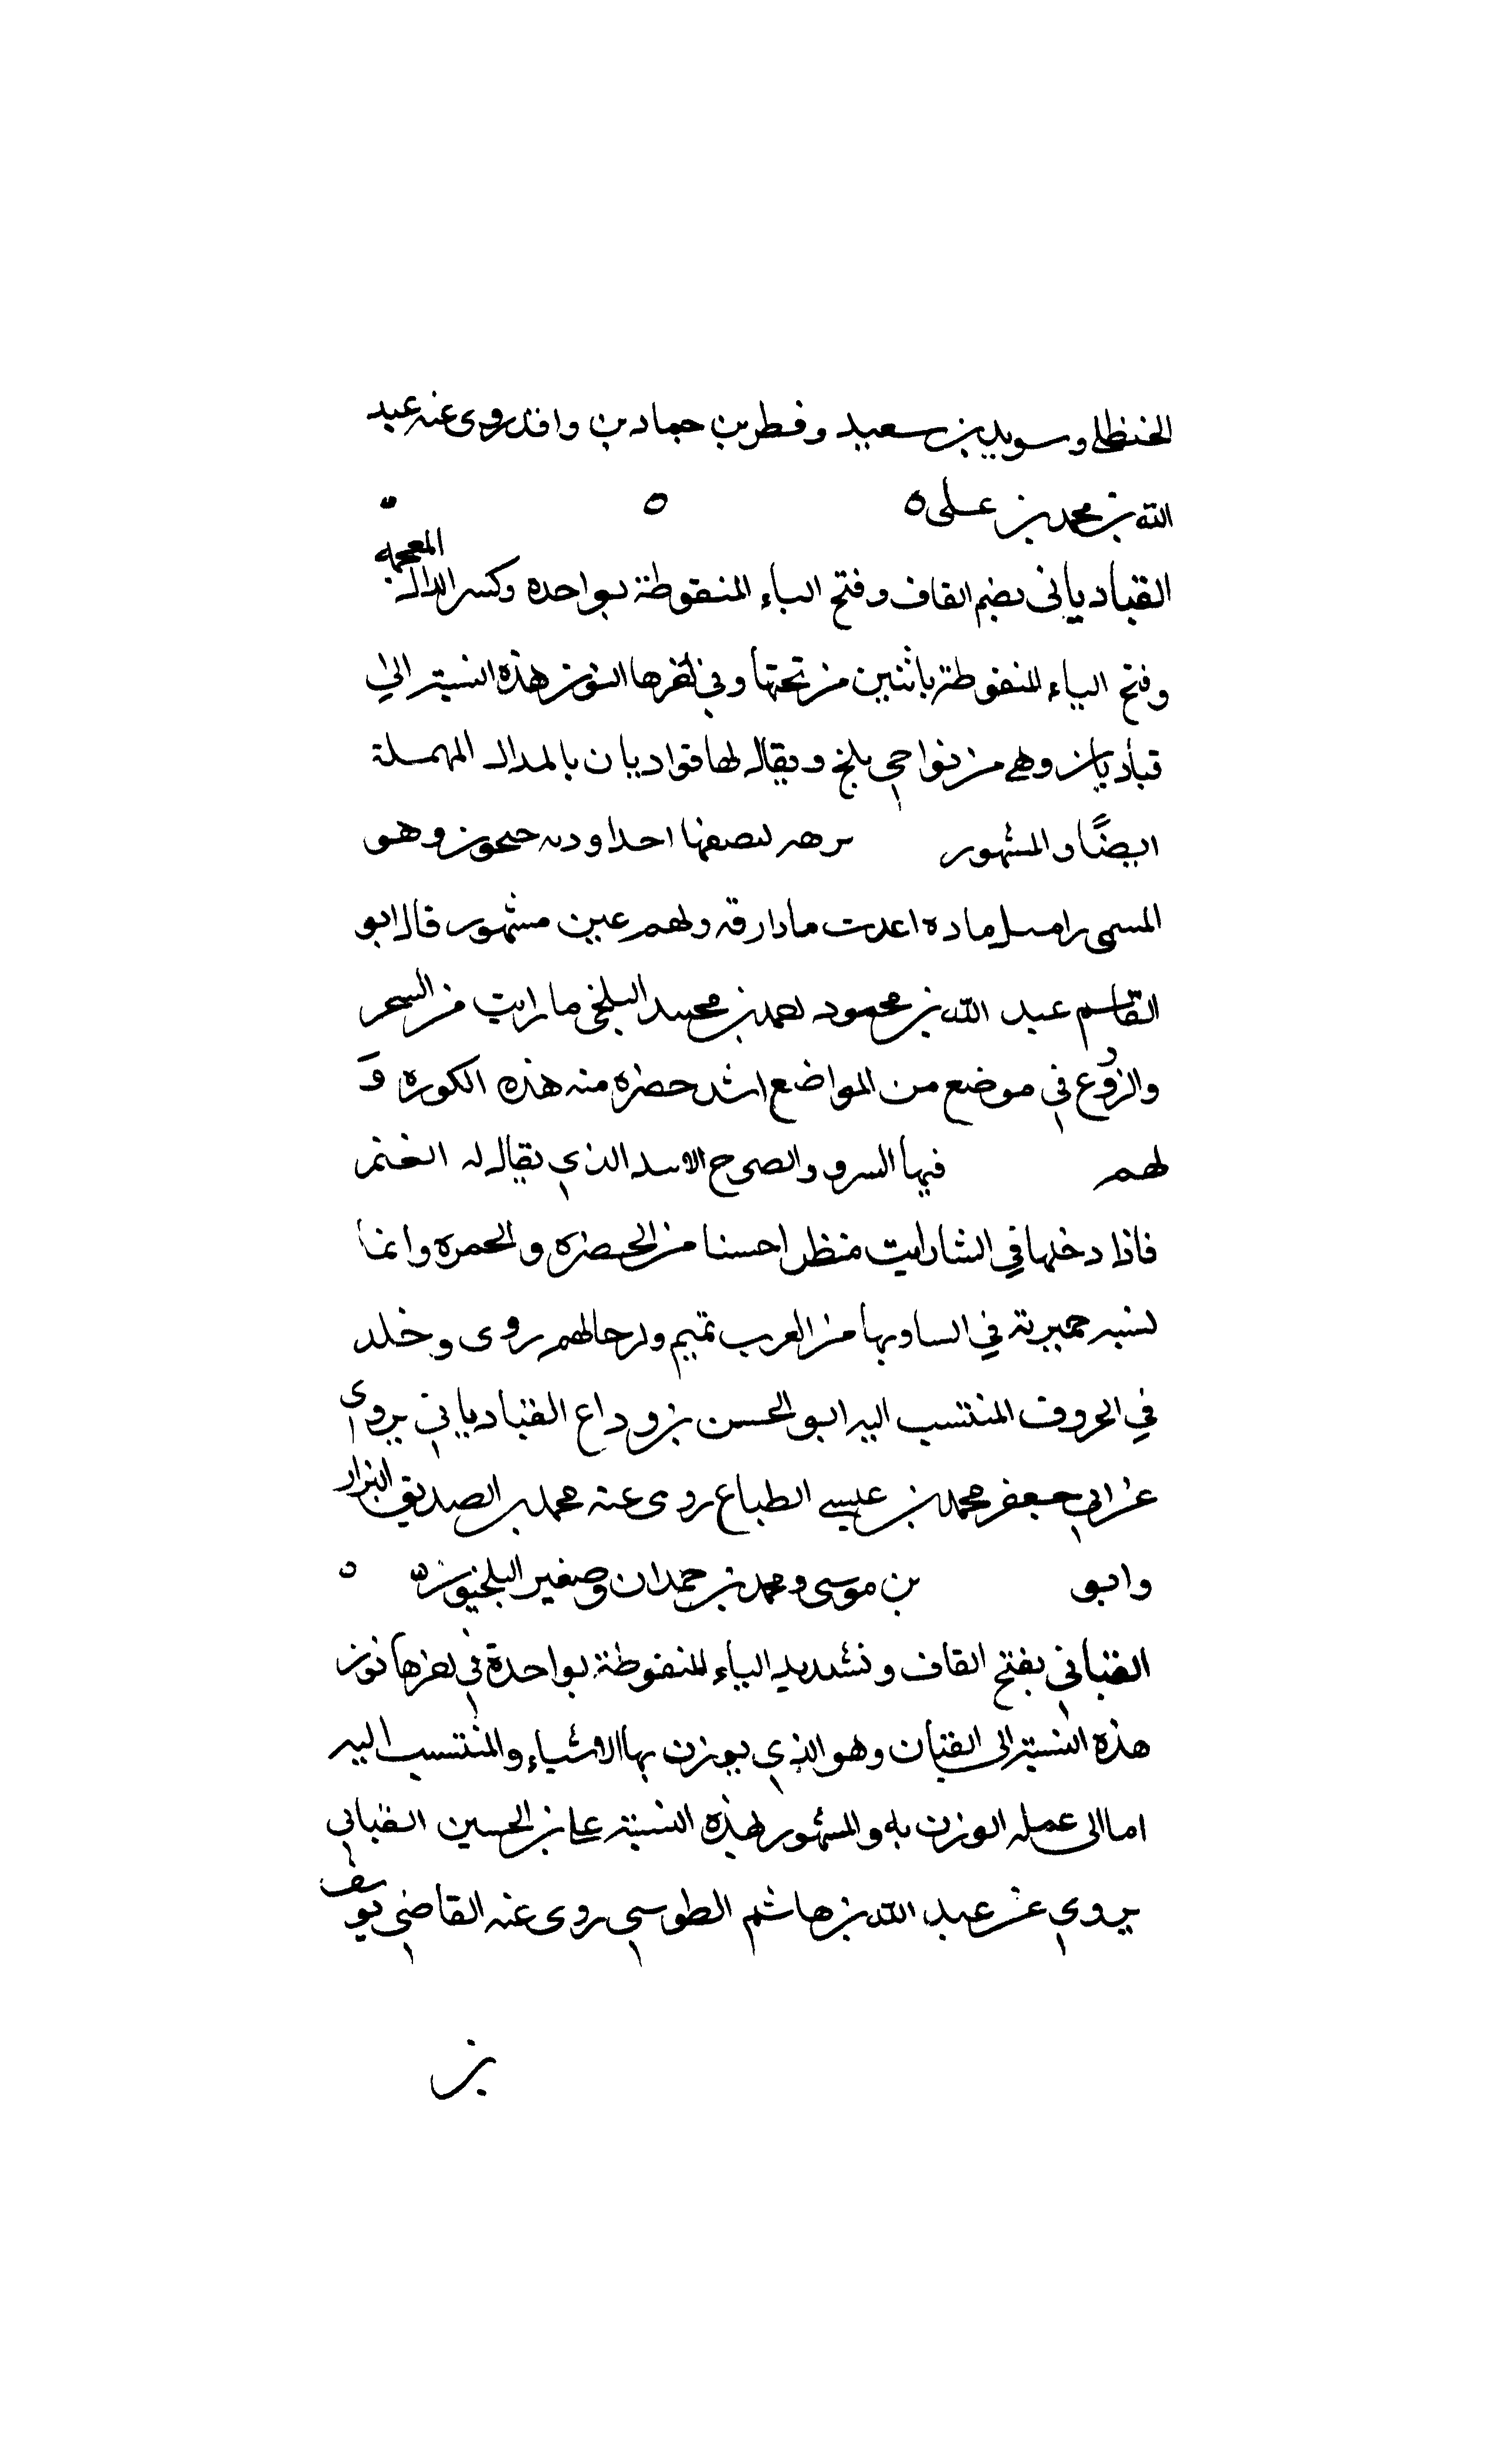 الحنظلى وسويد بن سعيد وفطر بن حماد بن واقد روى عنه عبد
الله بن محمد بن على ه ه
القباديانى بضم القاف وفتح الباء المنقوطة بواحده وكسر الدال المعجمة
وفتح الياء المنقوطة باثنتين من تحتها وفي اخرها النون هذه النسبة الى
قباديان وهى من نواحي بلخ ويقال لها قواديان بالدال المهملة
ايضًا والمشهور احد اودية جيحون وهو
المسمى ولهم عين مشهور قال ابو
القاسم عبد الله بن محمود احمد بن محمد البلخى ما رايت من السحر
والزروع في موضع من المواضع اشد خضرة منه هذه الكوره و
لهم فيها السرو الذي يقال له
فاذا دخلها في الشتا رايت منظرا حسنا من الخضرة والحمره وانما
في بها من العرب تميم ولرحالهم روى وخلد
في الحروف المنتسب اليه ابو الحسن بن وداع القباديانى يروى
عن ابي جعفر محمد بن عيسى الطباع روى عنه محمد بن الصديق البزار
وابو بن موسى ومحمد بن حمدان وصغير البلخيون ه ه
القبانى بفتح القاف وتشديد الباء المنقوطة بواحدة في اخرها نون
هذه النسبة الى القبان وهو الذي يوزن بها الاشياء والمنتسب اليه
اما الى عمله الوزن به والمشهور بهذه النسبة على بن الحسين القبانى
يروي عن عبد الله بن هاشم الطوسي روى عنه القاضي يوسف
بن